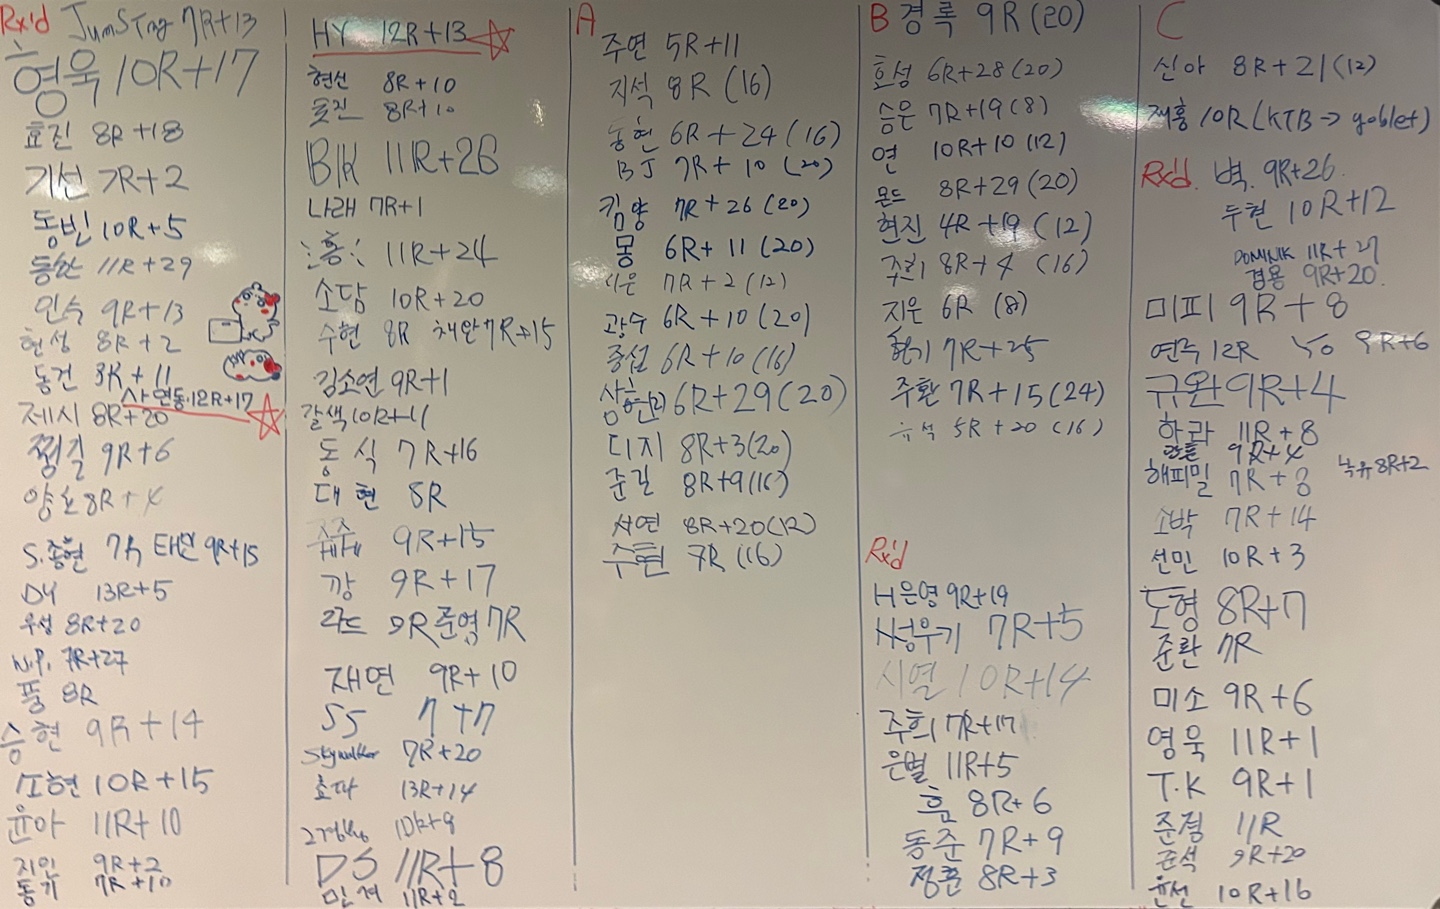 Rx'd JumSTing 7R+13
형욱 10R+17
효진 8R+18
기선 7R+2
동빈 10R+5
동한 11R+29
인수 9R+13
현성 8R+2
동건 3R+11
사연동 12R+17
제시 8R+20
찡길 9R+6
양호 8R+4
S.종현 7R 태빈 9R+15
DY 13R+5
우성 8R+20
N.P. 7R+27
품 8R
승현 9R+14
소현 10R+15
윤아 11R+10
지인 9R+2
동기 7R+10
HY 12R+13
현선 8R+10
윷진 8R+10
BK 11R+26
나래 7R+1
홍 11R+24
소담 10R+20
수현 8R 채안 7R+15
김소연 9R+1
갈색 10R+11
동식 7R+16
대현 8R
9R+15
깡 9R+17
라드 9R 준역 7R
재연 9R+10
SS 7+7
7R+20
효다 13R+14
10R+9
DS 11R+8
민저 11R+2
A
주연 5R+11
지석 8R (16)
동현 6R+24 (16)
BJ 7R+10 (20)
킴양 7R+26 (20)
몽 6R+11 (20)
시은 7R+2 (12)
광수 6R+10 (20)
중섭 6R+10 (16)
상현(2) 6R+29 (20)
디지 8R+3 (20)
준길 8R+9 (16)
서연 8R+20 (12)
수현 7R (16)
B 경록 9R (20)
효성 6R+28 (20)
승은 7R+19 (8)
연 10R+10 (12)
몬드 8R+29 (20)
현진 4R+19 (12)
주희 8R+4 (16)
지은 6R (8)
형기 7R+25
주환 7R+15 (24)
유석 5R+20 (16)
Rx'd
H은영 9R+19
H성우기 7R+5
시열 10R+14
주희 7R+17
은별 11R+5
흠 8R+6
동준 7R+9
정훈 8R+3
C
신아 8R+21 (12)
재홍 10R (KTB -> goblet)
Rx'd. 벽. 9R+26.
두현 10R+12
DOMINIK 11R+27
겸용 9R+20.
미피 9R+8
연주 12R 9R+6
규완 9R+4
하라 11R+8
9R+4
해피밀 7R+3 녹유 8R+2
소박 7R+14
선민 10R+3
도형 8R+7
준란 7R
미소 9R+6
영욱 11R+1
T.K 9R+1
준절 11R
준석 9R+20
윤선 10R+16